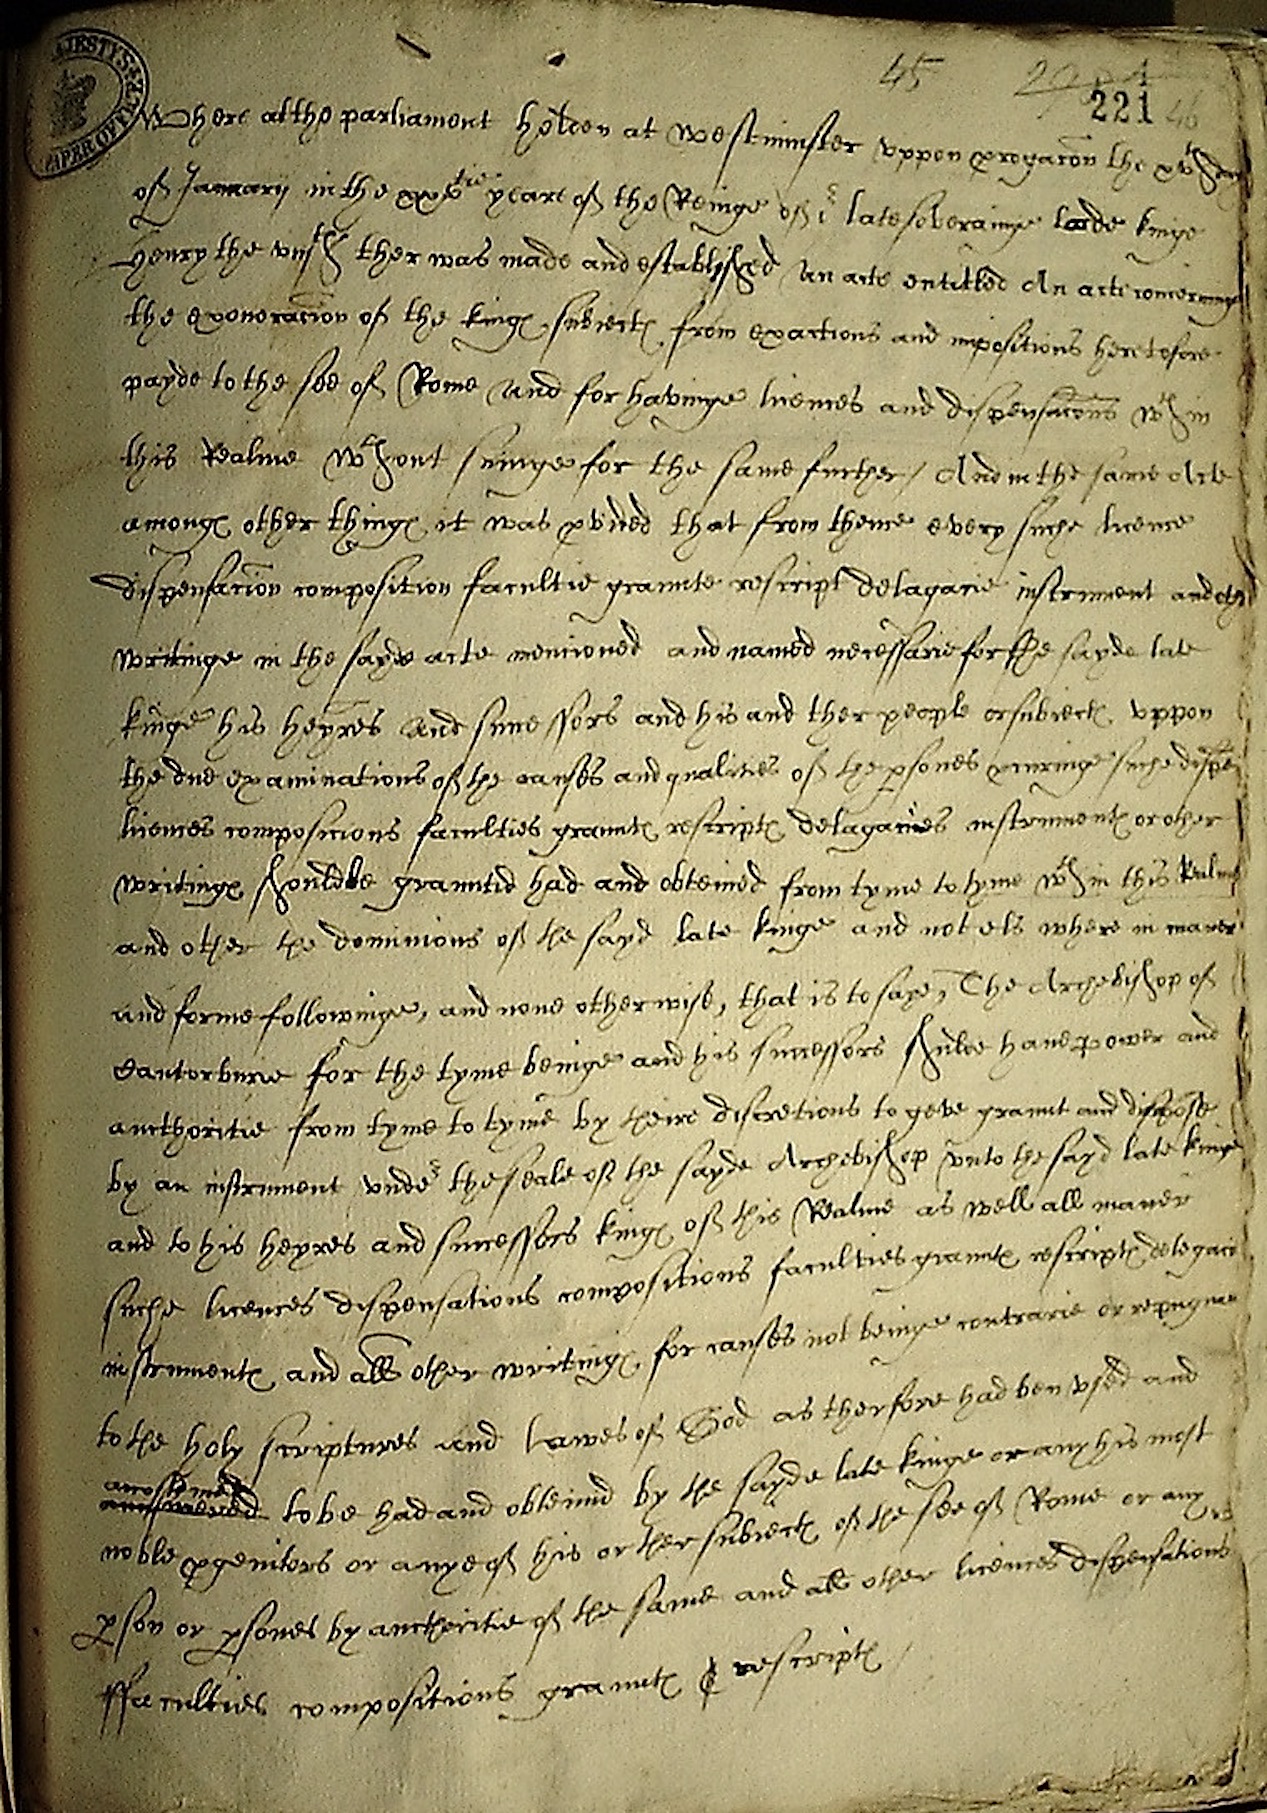 45
221
46
Where at the parliament holden at Westminster vppon progacon the xvth day
of January in the xxvtie yeare of the Reinge of or late soverainge lorde kinge
Henry the viijth ther was made and established an acte entitled An acte concerninge
the exoneracion of the kinges subiectes from exactions and impositions heretofore
payde to the see of Rome and for havinge licences and dispensacons wthin
this Realme wthout suinge for the same further / And in the same Acte
amonges other thinges it was pvided that from thence every suche licence
dispensacion composition facultie graunte rescript delagacie instrument and other
writinge in the sayde acte mencioned and named necessarie for the sayde late
kinge his heyres and successors and his and ther people or subiectes vppon
the due examinations of the causes and qualities of the psones pcuringe suche dispen
licences composicions faculties grauntes rescriptes delagacies instrumentes or other
writinges shoulde be grauntid had and obteined from tyme to tyme wthin this Realme
and other the dominions of the sayd late kinge and not els where in maner
and forme followinge, and none otherwise, that is to saye, The Archebishop of
Canterburie for the tyme beinge and his successors shulde haue power and
aucthoritie from tyme to tyme by theire discretions to geve graunt and dispose
by an instrument vnder the seale of the sayde Archebishop vnto the sayd late kinge
and to his heyres and successors kinges of this Realme as well all maner
suche licences dispensations compositions faculties grauntes rescriptes delegacies
instrumentes and all other writinges for causes not beinge contrarie or repugna
to the holy scriptures and lawes of God as therfore had ben vsed and
accostomed
to be had and obteined by the sayde late kinge or any his most
noble pgenitors or anye of his or ther subiectes of the see of Rome or any
pson or psones by aucthoritie of the same and all other licences dispensations
ffaculties compositions grauntes & rescriptes /